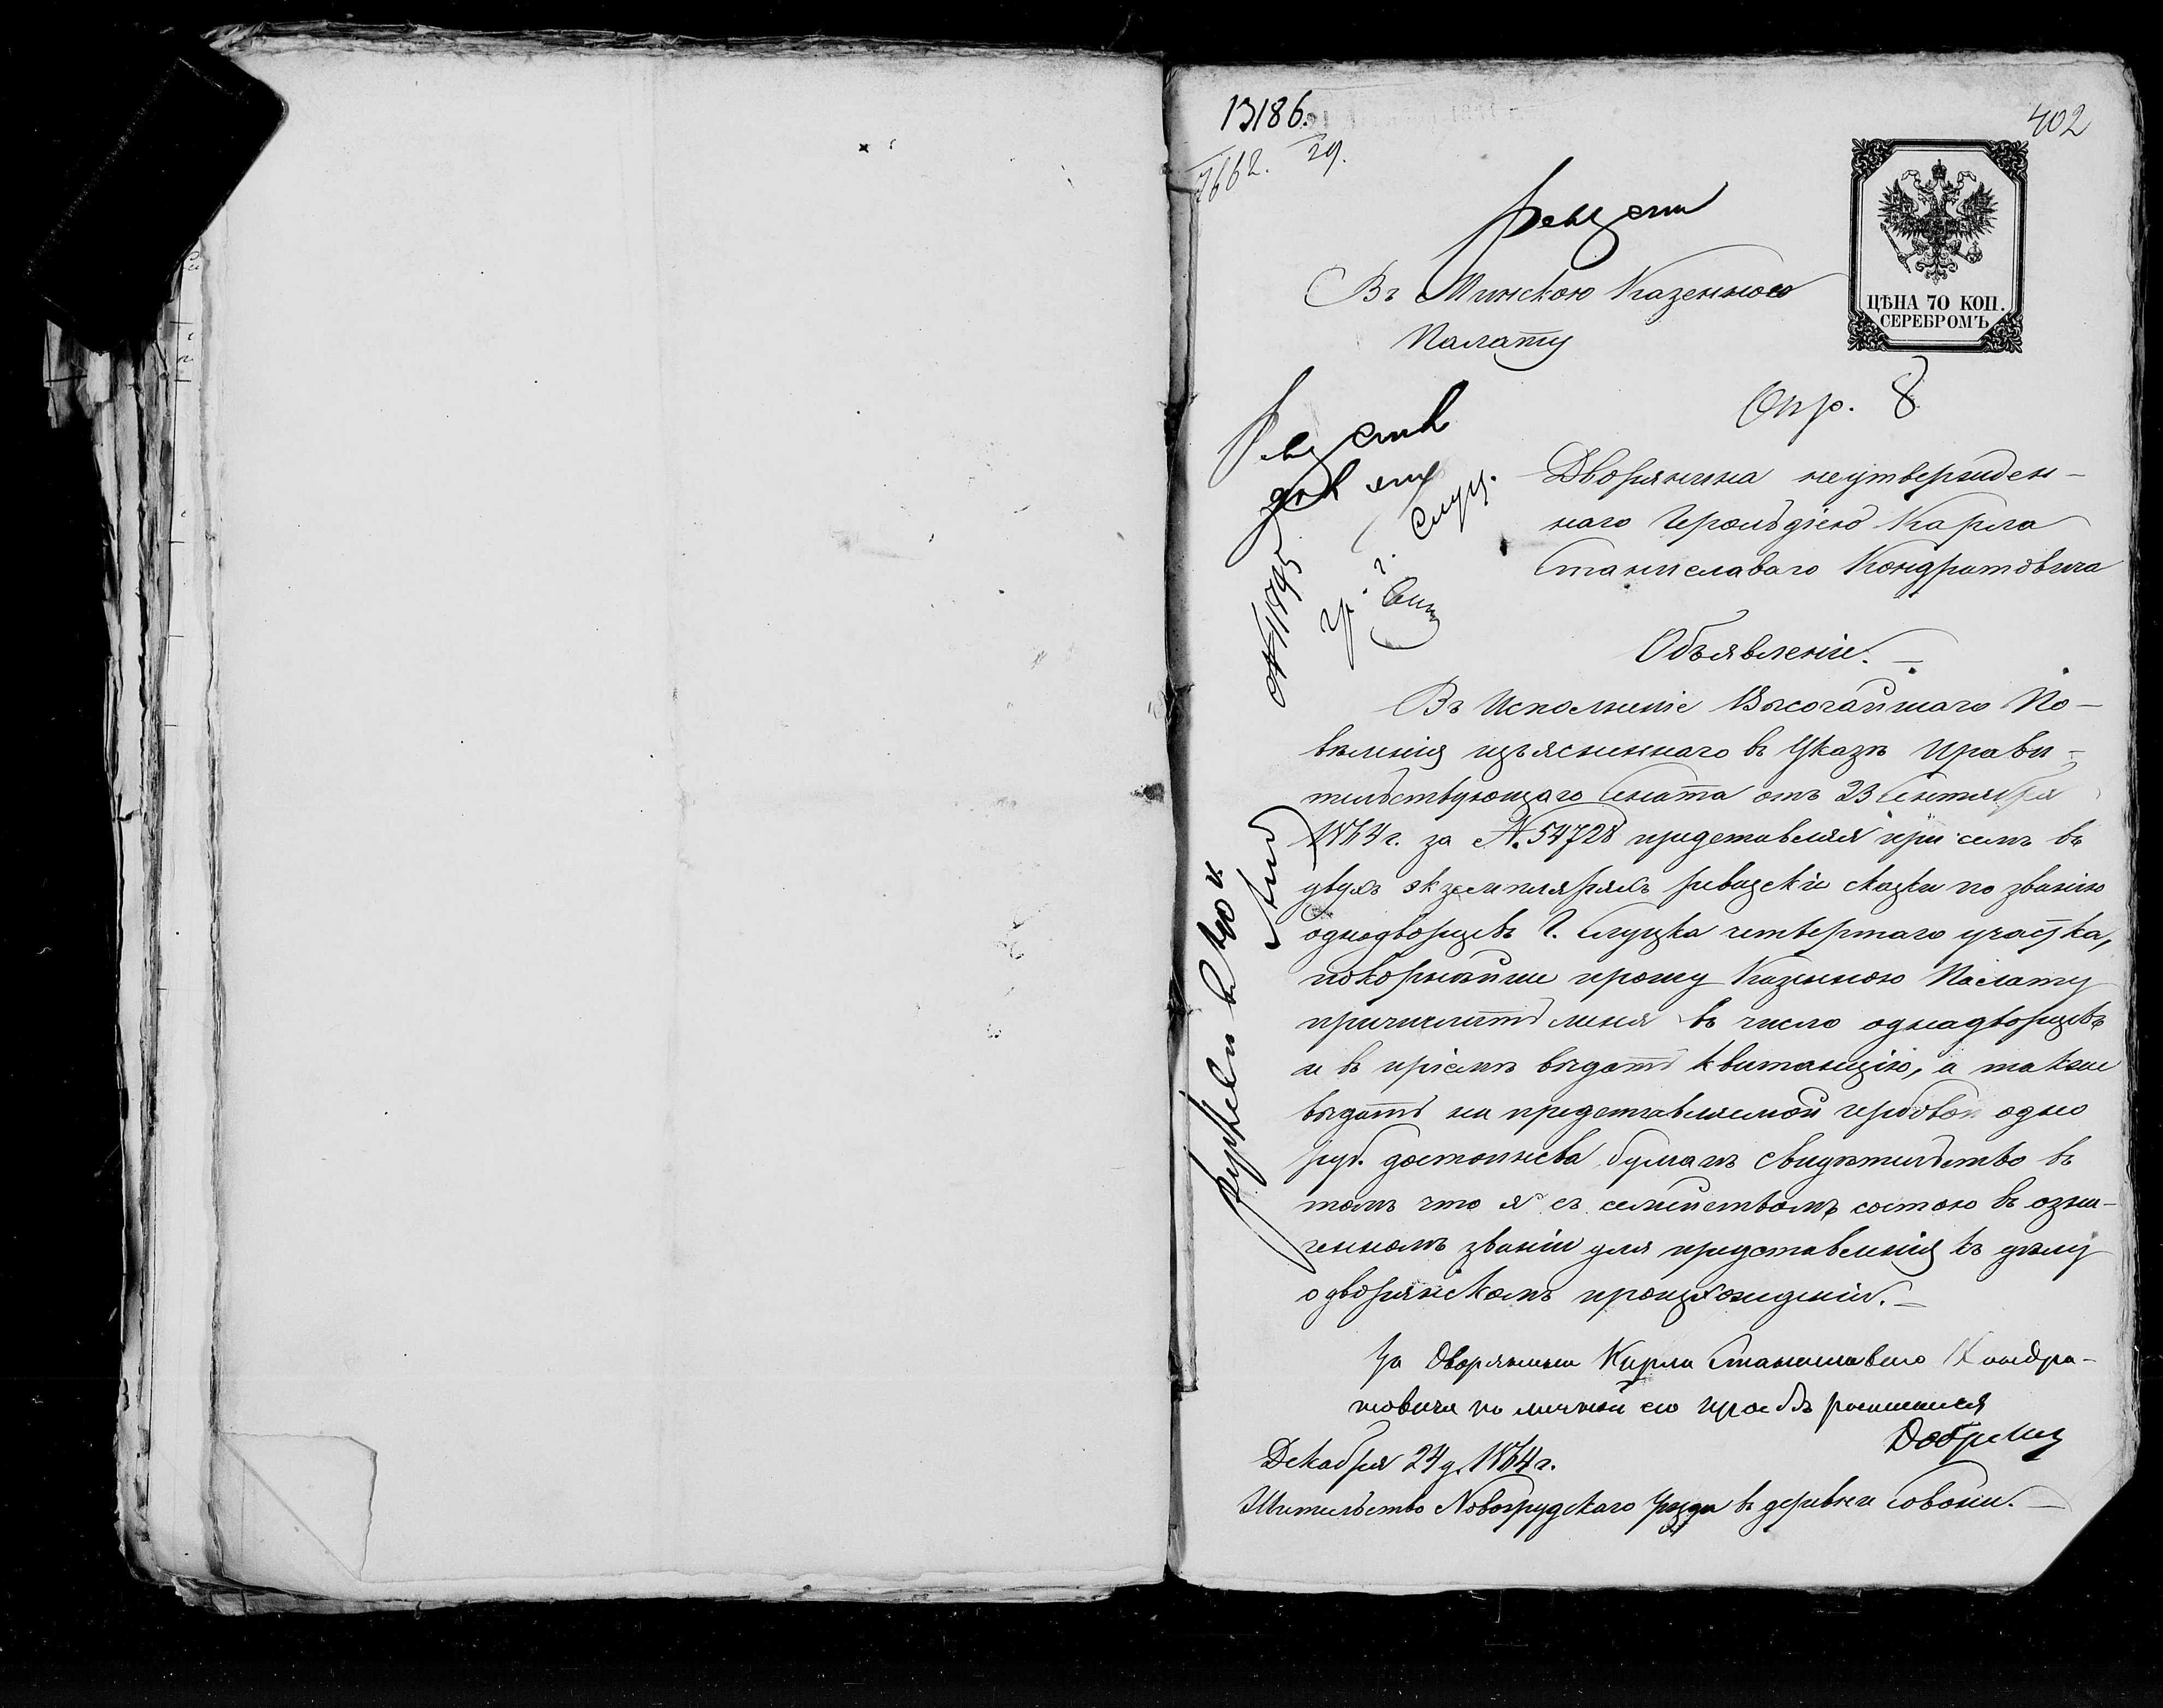 13186.
7662. 29.
402
ЦѢНА 70 КОП.
СЕРЕБРОМЪ
Въ Минскою Казенною
Палату
Опр. 8
Дворянина неутвержден-
наго Герольдіею Карла
Станиславаго Кондратовича
Объявленіе.
Въ Исполненіе Высочайшаго По-
вѣленія изъясненнаго въ Указѣ Прави-
тельствующаго Сената отъ 23 Сентября
1864 г. за №. 54728 представляя при семъ въ
двухъ экземплярахъ ревизскіе сказки по званію
однодворцевъ г. Слуцка четвертаго участка,
покорнѣйше прошу Казенною Палату
причислить меня въ число однадворцевъ
и въ пріемѣ выдать квитанцію, а также
выдать на представляемой гербовой одно
руб. достоинсва бумагѣ свидѣтельство въ
томъ что я съ семействомъ состою въ озна-
ченномъ званіи для представленія къ дѣлу
о дворянскомъ происхожденіи.
За дворянина Карла Станиславаго Кондра-
товича по личной его прозьбѣ росписался
Декабря 24 д. 1864 г.
Жительство Новогрудскаго уѣзда въ деревни